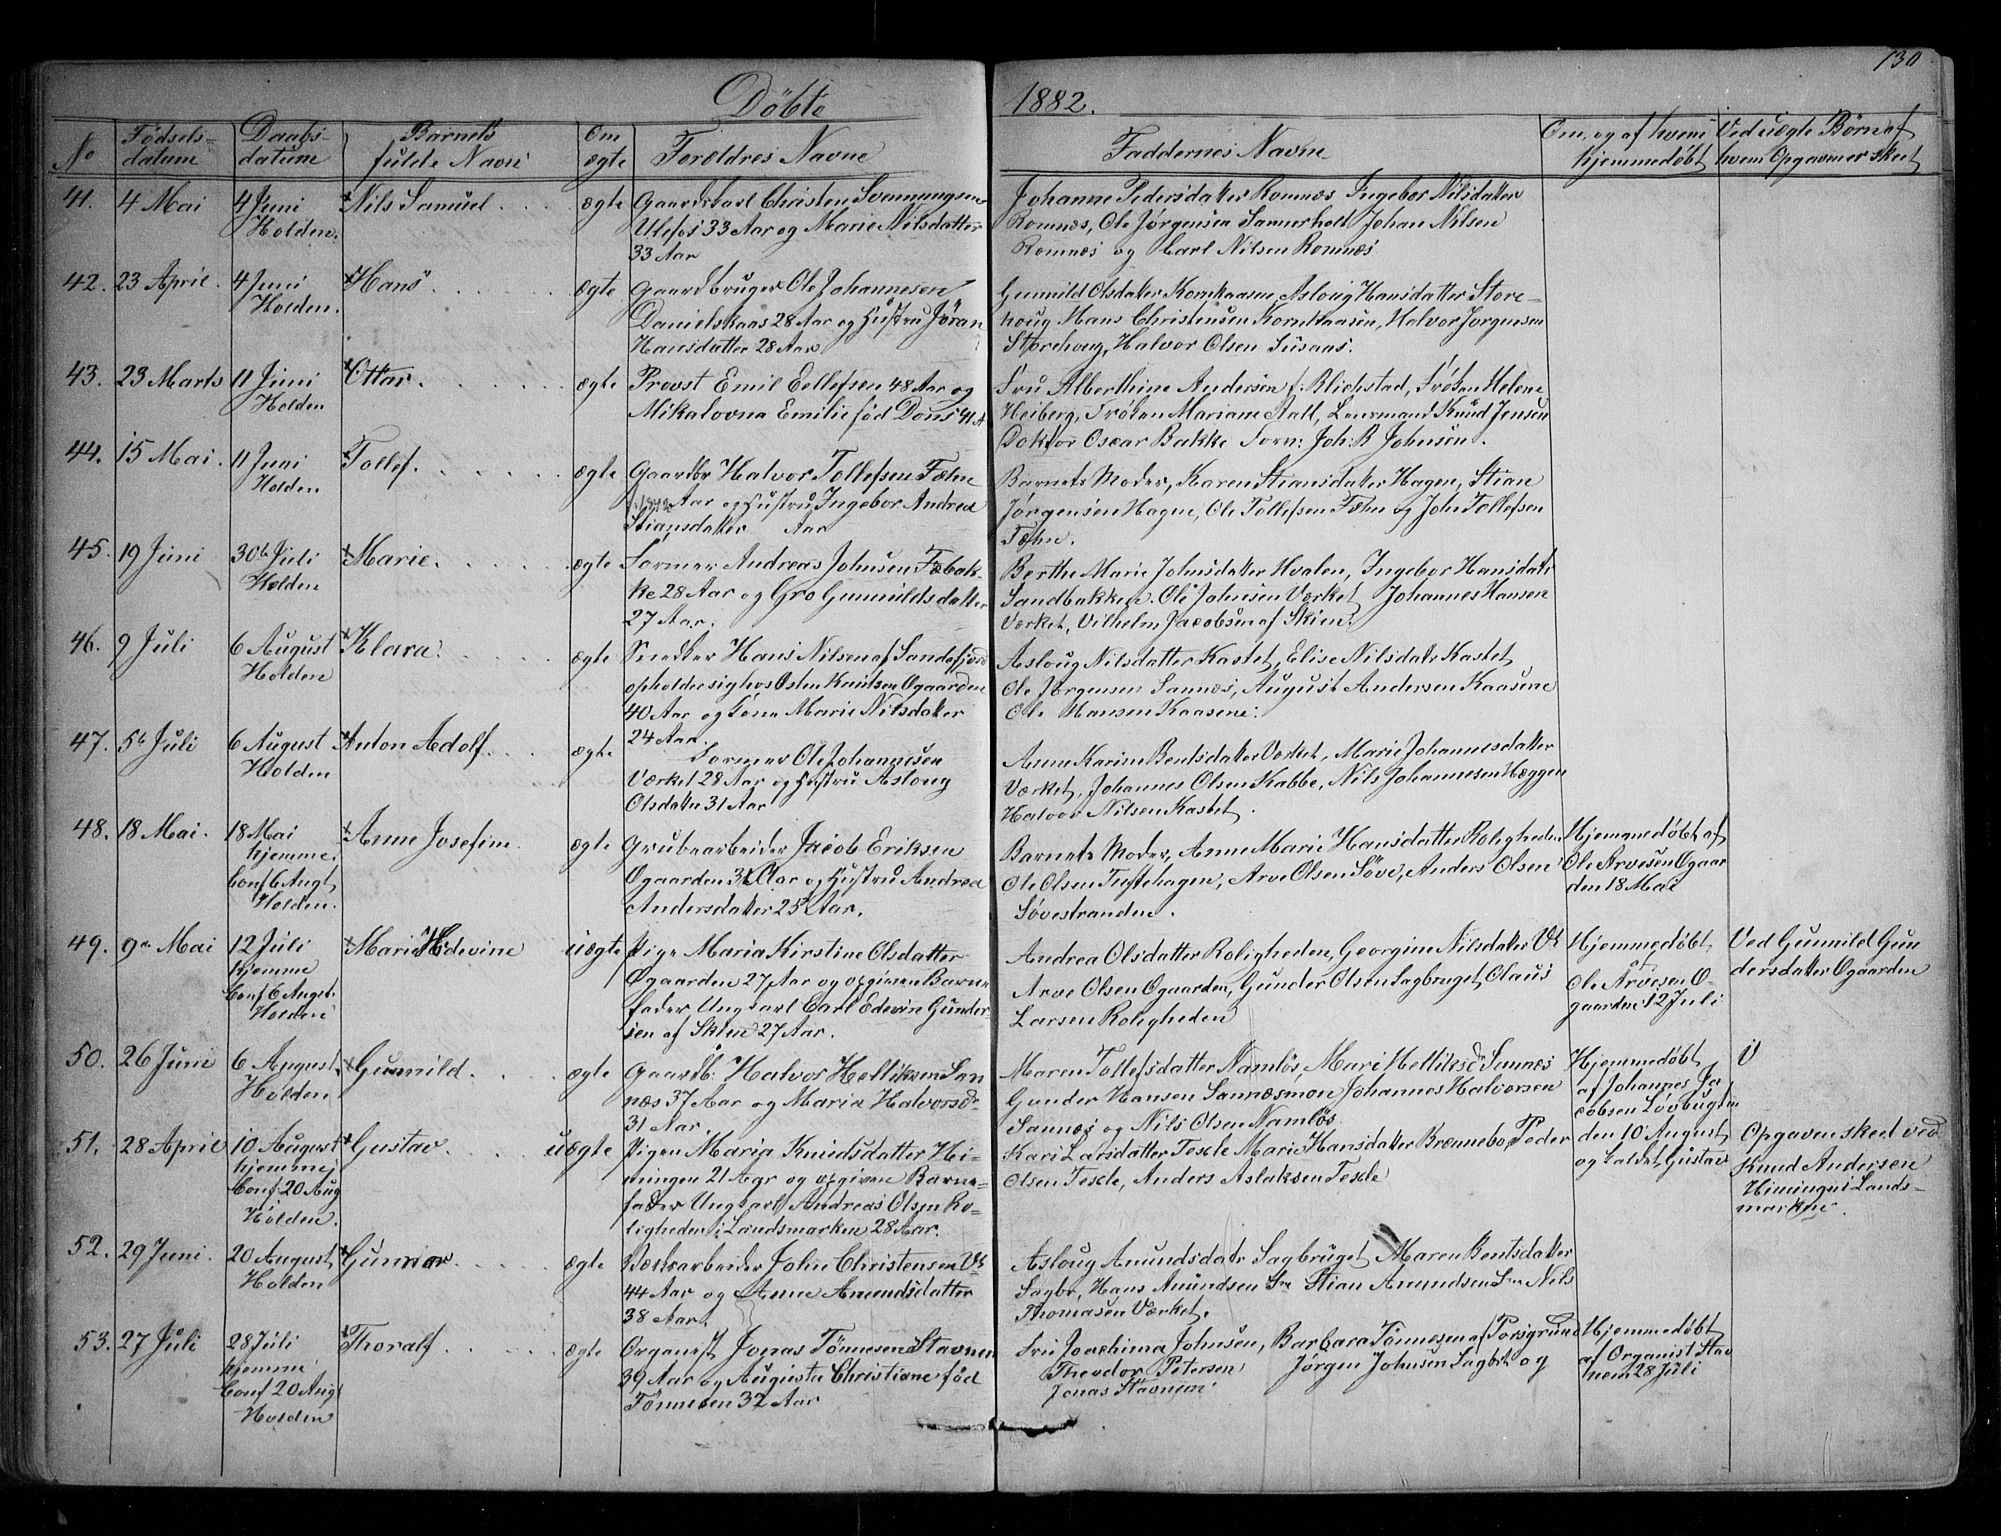 130
Döbte 1882.
No
Fødsels-
datum
Daabs-
datum
Barnets
fulde Navn
Om
ægte
Forældres Navne
Faddernes Navne
Om og af hvem
hjemmedøbt
Ved uægte Børn af
hvem Opgaven er skeet
41. 4 Mai
4 Juni
Holden.
Nils Samuel
ægte
Gaardskarl Christen Svennungsen
Ulefos 33 Aar og Marie Nilsdatter
33 Aar
Johanne Pedersdatter Romnæs Ingebor Nilsdatter
Romnæs, Ole Jørgensen Sannerholt Johan Nilsen
Romnæs og Carl Nilsen Romnæs
42. 23 April
4 Juni
Holden.
Hans
ægte
Gaardbruger Ole Johannesen
Danielskaas 28 Aar og Hustru Jøran
Hansdatter 28 Aar
Gunnild Olsdatter Kornkaasene, Asloug Hansdatter Store-
houg Hans Christensen Kornkaasen, Halvor Jørgensen
Storehoug, Halvor Olsen
43. 23 Marts
11 Juni
Holden
Ottar.
ægte
Provst Emil Eellefsen 48 Aar og
Mikalovna Emilie fød Dons 41 A
Fru Alberthine Andersen f. Blichstad, Frøken Helene
Heiberg, Frøken Mariane Stall, Lensmand Knud Jensen
Doktor Oscar Bakke Forn: Joh: B Johnsen.
44. 15 Mai.
11 Juni
Holden
Tollef.
ægte
Gaardbr Halvor Tollefsen Fæhn
Aar og Hustru Ingebor Andrea
Stiansdatter Aar
Barnets Moder, Karen Stiansdatter Hagen, Stian
Jørgensen Hagne, Ole Tollefsen Fæhn og John Tollefsen
Fæhn.
45. 19 Juni
30te Juli
Holden
Marie.
ægte
Formær Andreas Johnsen Fæbak-
ke 28 Aar og Gro Gunnildsdatter
27 Aar.
Berthe Marie Johnsdatter Hvalen, Ingebor Hansdatr
Sandbakken. Ole Johnsen Værket Johannes Hansen
Værket, Vilhelm Jacobsen af Skien.
46. 9 Juli
6 August
Holden
Klara.
ægte
Snedker Hans Nilsen af Sandefjord
opholder sig hos Osten Knutsen Ogaarden
40 Aar og Lena Marie Nilsdatter
24 Aar.
Asloug Nilsdatter Kastet, Elise Nilsdatr Kastet
Ole Jørgensen Sannæs, August Andersen Kaasene
Ole Hansen Kaasene.
47. 5te Juli
6 August
Holden
Anton Adolf.
ægte
Formær Ole Johannesen
Værket 28 Aar og Hustru Asloug
Olsdatter 31 Aar
Anne Karine Bentsdatter Værket, Marie Johannesdatter
Værket, Johannes Olsen Kabbe, Nils Johannesen Hæggen
Halvor Nilsen Kastet.
48. 18 Mai.
18 Mai
hjemme,
Conf 6 Augt,
Holden.
Anne Josefine
ægte
Grubearbeider Jacob Eriksen
Ogaarden 31 Aar og Hustru Andrea
Andersdatter 25 Aar.
Barnets Moder, Anne Marie Hansdatter Roligheden
Ole Olsen Tuftehagen, Arve Olsen Søve, Anders Olsen
Søvestranden.
Hjemmedøbt af
Ole Arvesen Ogaar
den 18 Mai
49. 9de Mai
12 Juli
hjemme
Conf 6 Augst.
Holden
Marie Hedevine
uægte
Pige Maria Kirstine Olsdatter
Ogaarden 27 Aar og opgiven Barne
fader Ungkarl Carl Edevin Gunder-
sen af Skien 27 Aar.
Andrea Olsdatter Roligheden, Georgine Nilsdatter Vk
Arve Olsen Ogaarden, Gunder Olsen Sagbruget, Claus
Larsen Roligheden
Hjemmedøbt,
af
Ole Arvesen O-
gaarden 12 Juli
Ved Gunnild Gun
dersdatter Ogaarden
50. 26 Juni
6 August,
Holden
Gunnild
ægte
Gaardb: Halvor Helliksen San
næs 37 Aar og Maria Halvorsd.
31 Aar.
Maren Tollefsdatter Namløs, Mari Helliksdr Sannæs
Gunder Hansen Sannæsmon Johannes Halvorsen
Sannæs og Nils Olsen Namløs
Hjemmedøbt,
af Johannes Ja
cobsen Løvbugten
51. 28 April
10 August
hjemmej
Conf: 20 Aug
Holden.
Gustav
uægte
Pigen Maria Knudsdatter Hi-
mingen 21 Aar og opgiven Barne-
fader Ungkarl Andreas Olsen Ro-
ligheden i Landsmarken 28 Aar.
Kari Larsdatter Tesde Marie Hansdatter Brænnebo, Peder
Olsen Tesde, Anders Aslaksen Tesde
den 10 August
og kaldet Gustav
Opgaven skeet ved
Knud Andersen
Himingen i Lands-
marken.
52. 29 Juni.
20 August,
Holden
Gunnar
ægte
Værksarbeider John Christensen Vk
44 Aar og Anne Amundsdatter
38 Aar.
Asloug Amundsdatr Sagbruget Maren Bentsdatter
Sagbr, Hans Amundsen Sm Stian Amundsen Sm Nils
Thomasen Værket.
53. 27 Juli
28 Juli
hjemme
Conf 20 Aug
Holden
Thoralf
ægte
Organist Jonas Tönnesen Stavnem
39 Aar og Augusta Christiane fød
Tönnesen 32 Aar
Fru Joachima Johnsen, Barbara Tönnesen af Porsgrund
Theodor Petersen Jørgen Johnsen Sagbrt og
Jonas Stavnem
Hjemmedøbt
af Organist Stav
nem 28 Juli